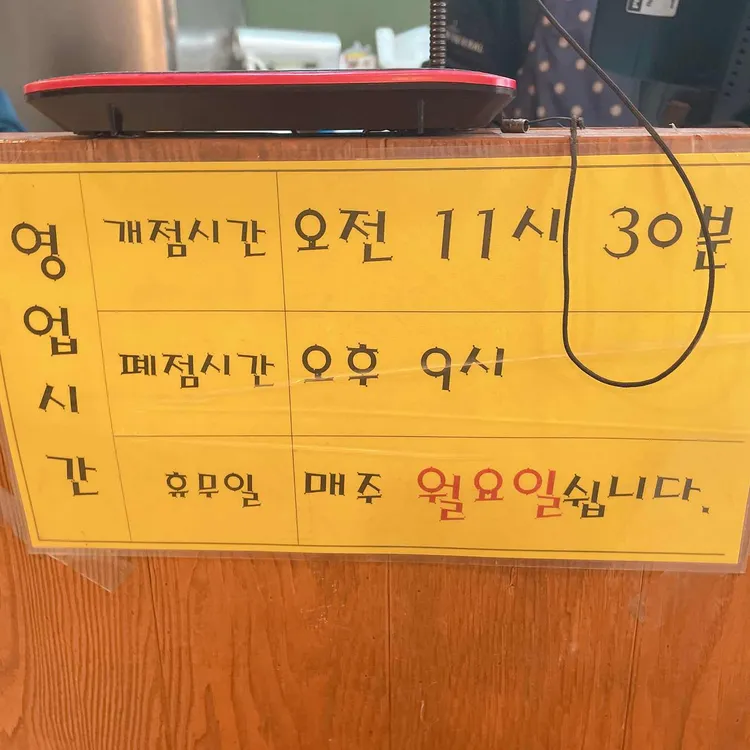 영업시간
개점시간 오전 11시 30분
폐점시간 오후 9시
휴무일 매주 월요일쉽니다.